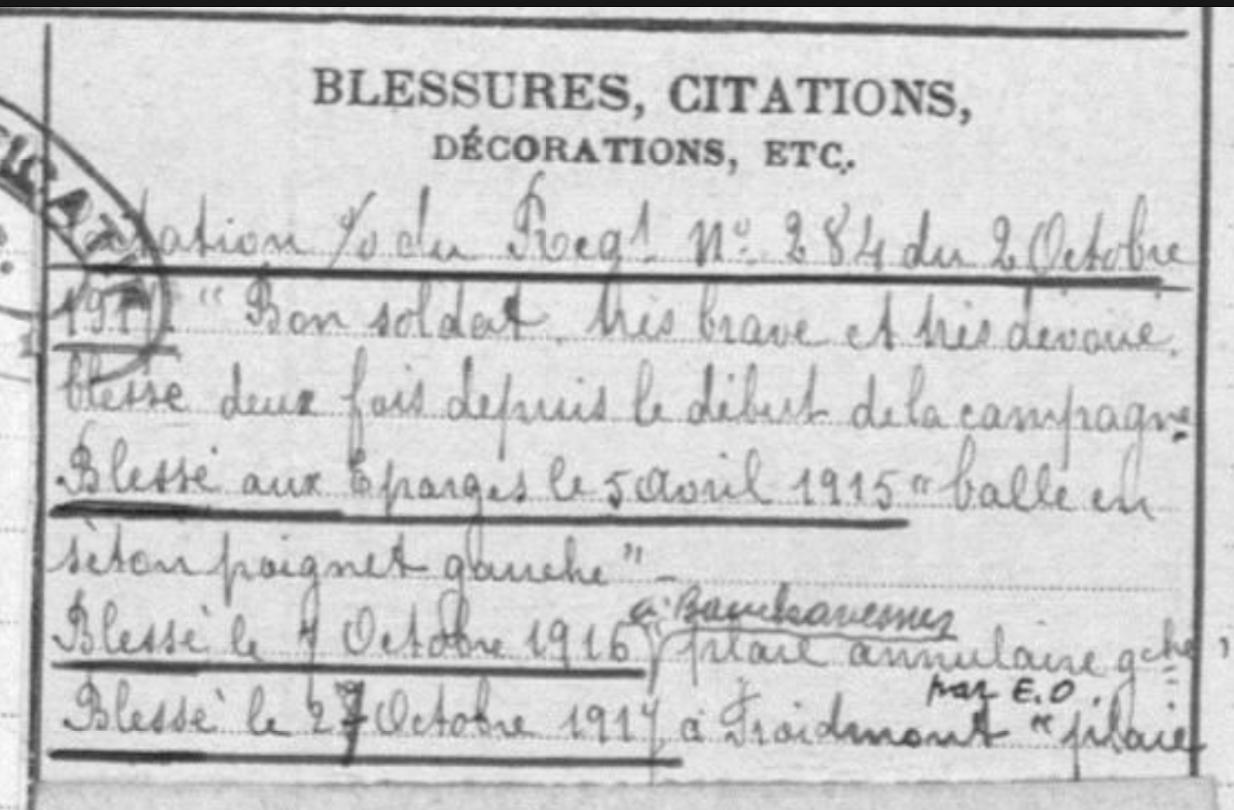 FICAT
BLESSURES, CITATIONS,
DÉCORATIONS, ETC.
Citation % du Régt N° 284 du 2 Octobre
191 " Bon soldat, très brave et très dévoué.
blessé deux fois depuis le début de la campagne
Blessé aux Eparges le 5 avril 1915 " balle en
séton poignet gauche " -
à Bouchavesnes
Blessé le 7 Octobre 1916 plaie annulaire gche,
par E.O.
Blessé le 27 Octobre 1917 à Froidmont " plaie